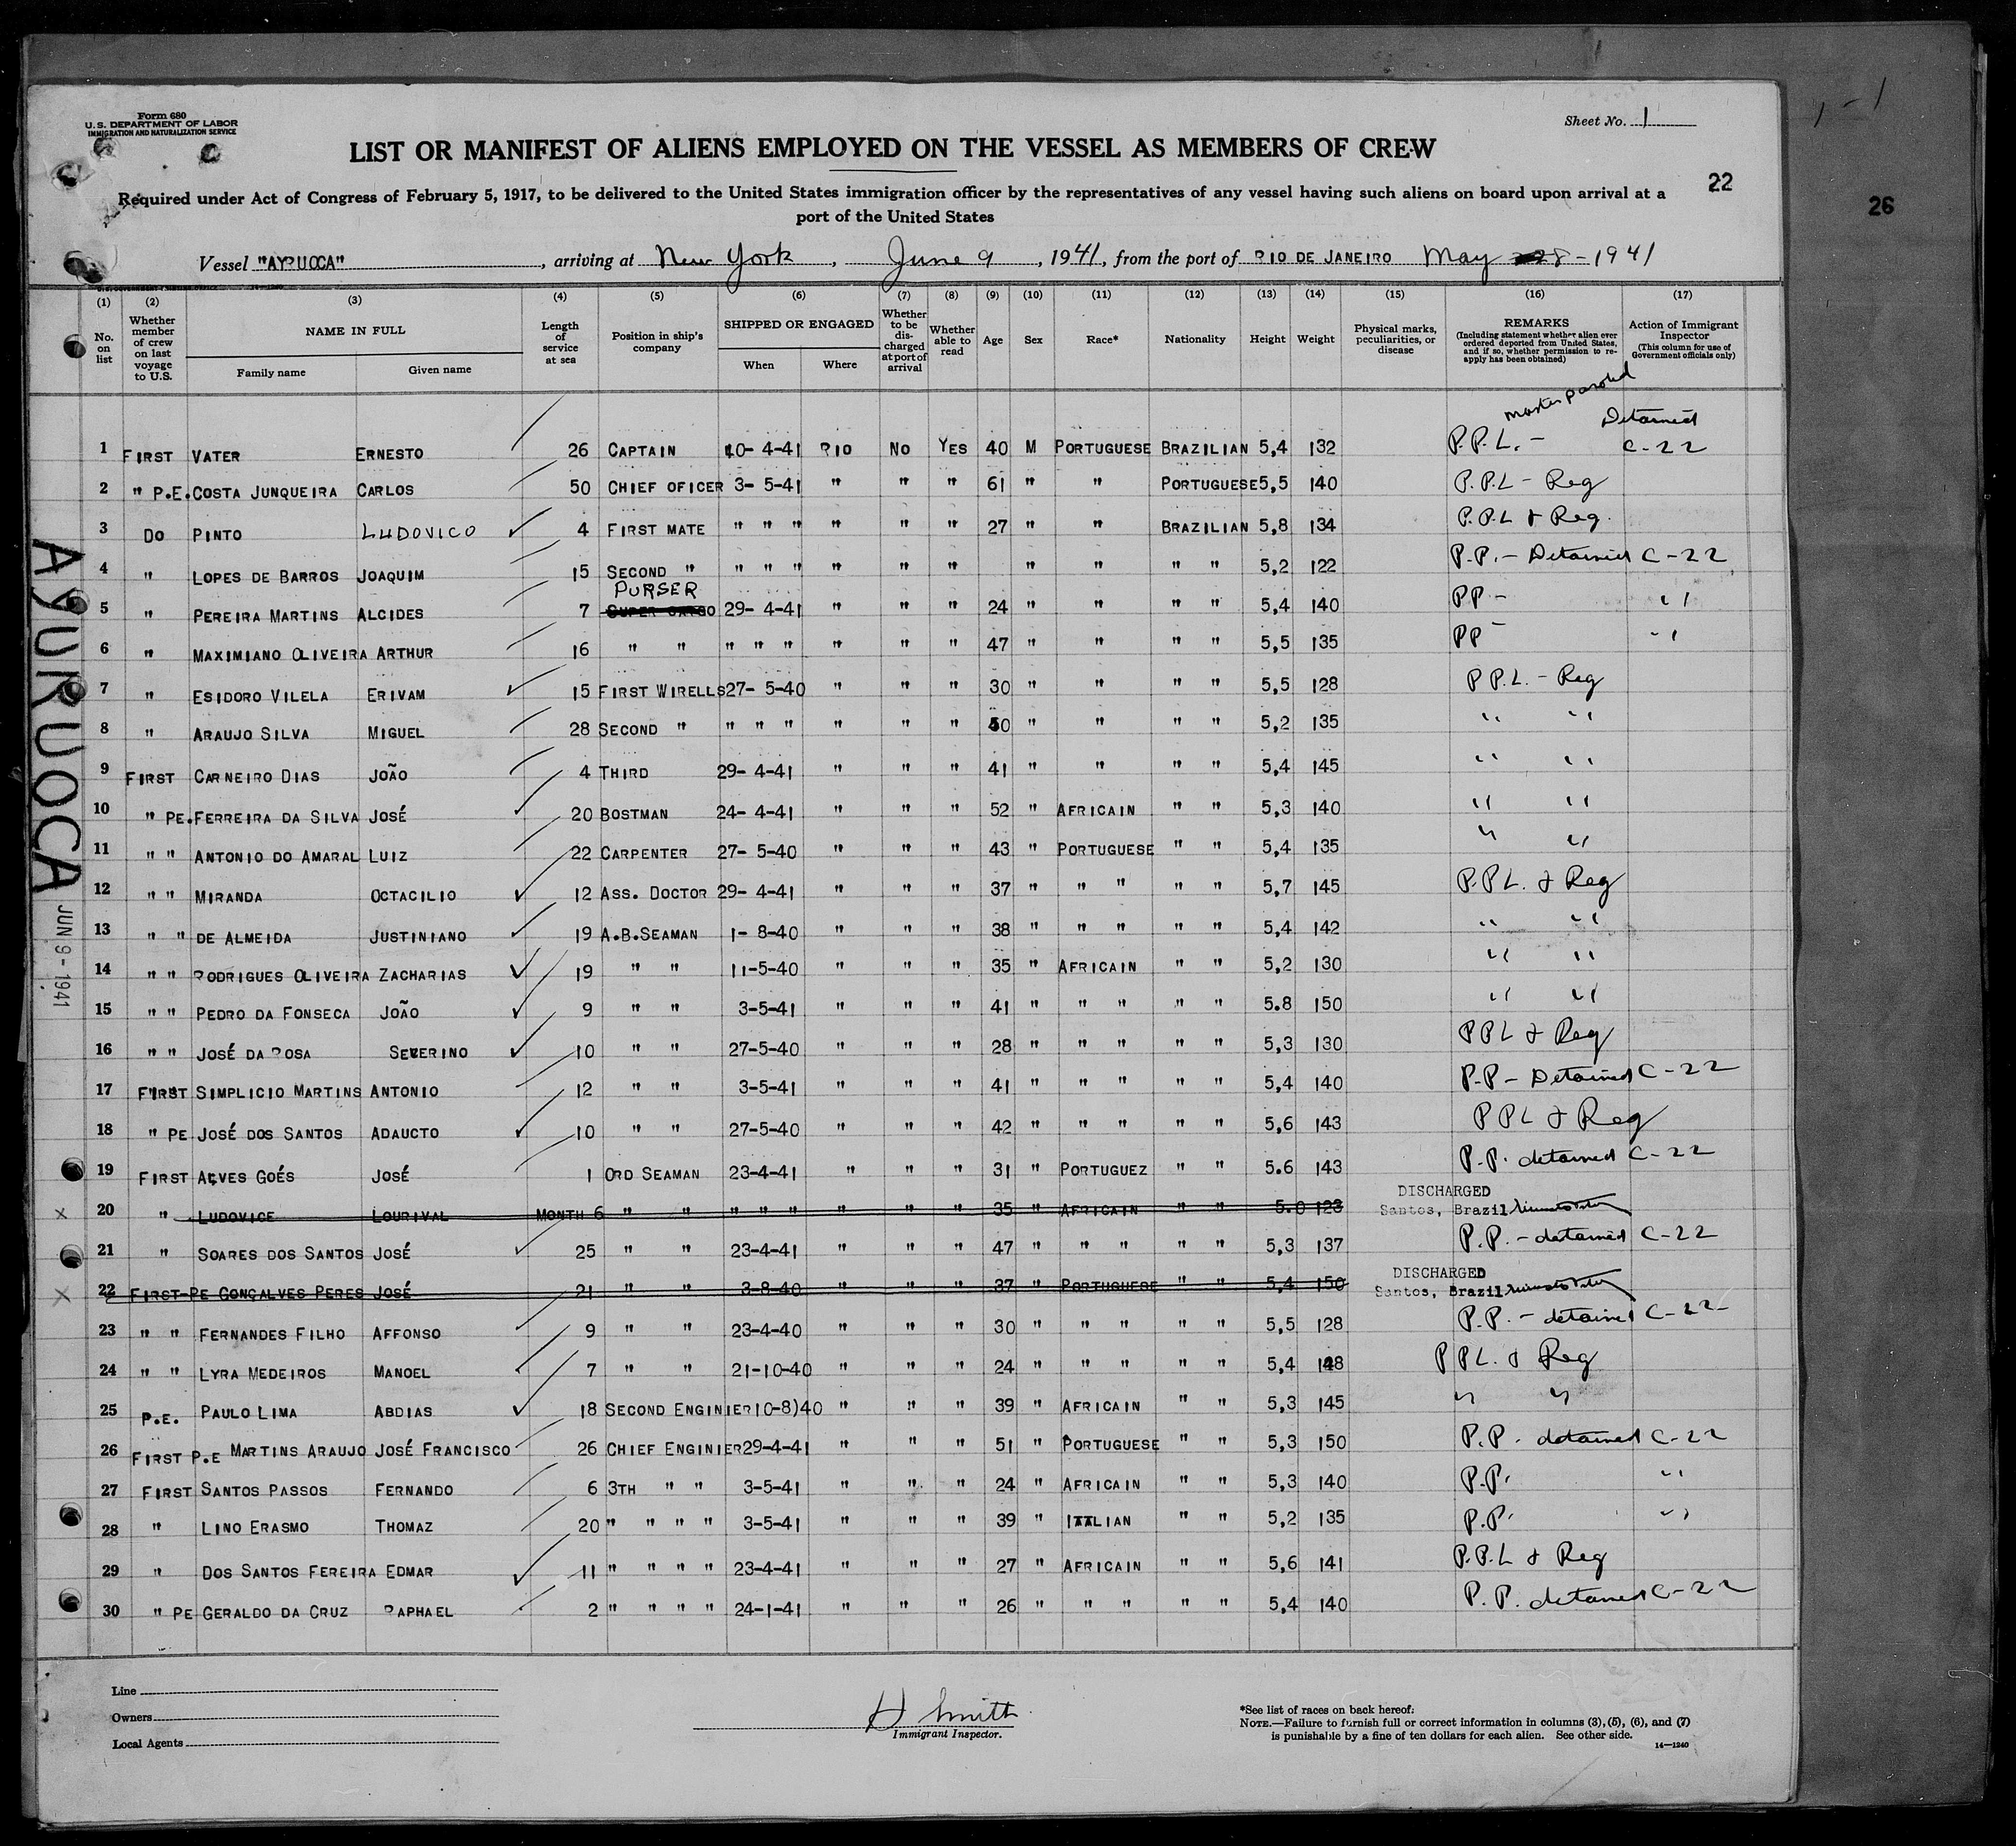 Form 680
U.S. DEPARTMENT OF LABOR
IMMIGRATION AND NATURALIZATION SERVICE
Sheet No. 1
LIST OR MANIFEST OF ALIENS EMPLOYED ON THE VESSEL AS MEMBERS OF CREW
Required under Act of Congress of February 5, 1917, to be delivered to the United States immigration officer by the representatives of any vessel having such aliens on board upon arrival at a
port of the United States
22
26
Vessel "AYRUOCA", arriving at New York, June 9, 1941, from the port of RIO DE JANEIRO May 28-1941
(1) (2) (3) (4) (5) (6) (7) (8) (9) (10) (11) (12) (13) (14) (15) (16) (17)
No. on list
Whether member of crew on last voyage to U.S.
NAME IN FULL
Family name Given name
Length of service at sea
Position in ship's company
SHIPPED OR ENGAGED
When Where
Whether to be discharged at port of arrival
Whether able to read
Age
Sex
Race*
Nationality
Height
Weight
Physical marks, peculiarities, or disease
REMARKS
(Including statement whether alien ever ordered deported from United States, and if so, whether permission to reapply has been obtained)
Action of Immigrant Inspector
(This column for use of Government officials only)
master paroled
Detained
1 FIRST VATER ERNESTO 26 CAPTAIN 10- 4-41 RIO NO YES 40 M PORTUGUESE BRAZILIAN 5,4 132 P.P.L. - C-22
2 " P.E. COSTA JUNQUEIRA CARLOS 50 CHIEF OFICER 3- 5-41 " " " 61 " " PORTUGUESE 5,5 140 P.P.L - Reg
3 DO PINTO LUDOVICO 4 FIRST MATE " " " " " " 27 " " BRAZILIAN 5,8 134 P.P.L & Reg.
4 " LOPES DE BARROS JOAQUIM 15 SECOND " " " " " " " " " " " 5,2 122 P.P. - Detained C-22
PURSER
5 " PEREIRA MARTINS ALCIDES 7 SUPER CARGO 29- 4-41 " " " 24 " " " " 5,4 140 PP - "
6 " MAXIMIANO OLIVEIRA ARTHUR 16 " " " " " " " " 47 " " " " 5,5 135 PP - "
7 " ESIDORO VILELA ERIVAM 15 FIRST WIRELLS 27- 5-40 " " " 30 " " " " 5,5 128 P P.L. - Reg
8 " ARAUJO SILVA MIGUEL 28 SECOND " " " " " " " 50 " " " " 5,2 135 " "
9 FIRST CARNEIRO DIAS JOÃO 4 THIRD 29- 4-41 " " " 41 " " " " 5,4 145 " "
10 " PE. FERREIRA DA SILVA JOSÉ 20 BOSTMAN 24- 4-41 " " " 52 " AFRICAIN " " 5,3 140 " "
11 " " ANTONIO DO AMARAL LUIZ 22 CARPENTER 27- 5-40 " " " 43 " PORTUGUESE " " 5,4 135 " "
12 " " MIRANDA OCTACILIO 12 ASS. DOCTOR 29- 4-41 " " " 37 " " " " " 5,7 145 P.P.L. & Reg
13 " " DE ALMEIDA JUSTINIANO 19 A.B.SEAMAN 1- 8-40 " " " 38 " " " " " 5,4 142 " "
14 " " RODRIGUES OLIVEIRA ZACHARIAS 19 " " 11-5-40 " " " 35 " AFRICAIN " " 5,2 130 " "
15 " " PEDRO DA FONSECA JOÃO 9 " " 3-5-41 " " " 41 " " " " " 5.8 150 " "
16 " " JOSÉ DA ROSA SEVERINO 10 " " 27-5-40 " " " 28 " " " " " 5,3 130 PPL & Reg
17 FIRST SIMPLICIO MARTINS ANTONIO 12 " " 3-5-41 " " " 41 " " " " " 5,4 140 P.P - Detained C-22
18 " PE JOSÉ DOS SANTOS ADAUCTO 10 " " 27-5-40 " " " 42 " " " " " 5,6 143 PPL & Reg
19 FIRST ALVES GOÉS JOSÉ 1 ORD SEAMAN 23-4-41 " " " 31 " PORTUGUEZ " " 5.6 143 P.P. detained C-22
20 " LUDOVICE LOURIVAL MONTH 6 " " " " " " " " 35 " AFRICAIN " " 5.0 123 DISCHARGED Santos, Brazil
21 " SOARES DOS SANTOS JOSÉ 25 " " 23-4-41 " " " 47 " " " " " 5,3 137 P.P. - detained C-22
22 FIRST-PE GONÇALVES PERES JOSÉ 21 " " 3-8-40 " " " 37 " PORTUGUESE " " 5,4 150 DISCHARGED Santos, Brazil
23 " " FERNANDES FILHO AFFONSO 9 " " 23-4-40 " " " 30 " " " " " 5,5 128 P.P. - detained C-22
24 " " LYRA MEDEIROS MANOEL 7 " " 21-10-40 " " " 24 " " " " " 5,4 148 P P L. & Reg
25 P.E. PAULO LIMA ABDIAS 18 SECOND ENGINIER 10-8)40 " " " 39 " AFRICAIN " " 5,3 145 " "
26 FIRST P.E MARTINS ARAUJO JOSÉ FRANCISCO 26 CHIEF ENGINIER 29-4-41 " " " 51 " PORTUGUESE " " 5,3 150 P.P. detained C-22
27 FIRST SANTOS PASSOS FERNANDO 6 3TH " " 3-5-41 " " " 24 " AFRICAIN " " 5,3 140 P.P. "
28 " LINO ERASMO THOMAZ 20 " " " " 3-5-41 " " " 39 " ITALIAN " " 5,2 135 P.P. "
29 " DOS SANTOS FEREIRA EDMAR 11 " " " " 23-4-41 " " " 27 " AFRICAIN " " 5,6 141 P.P.L & Reg
30 " PE GERALDO DA CRUZ RAPHAEL 2 " " " " 24-1-41 " " " 26 " " " " " 5,4 140 P.P. detained C-22
AYURUOCA
JUN 9 - 1941
Line
Owners
Local Agents
H Smith
Immigrant Inspector.
*See list of races on back hereof.
NOTE.—Failure to furnish full or correct information in columns (3), (5), (6), and (7)
is punishable by a fine of ten dollars for each alien. See other side.
14—1240